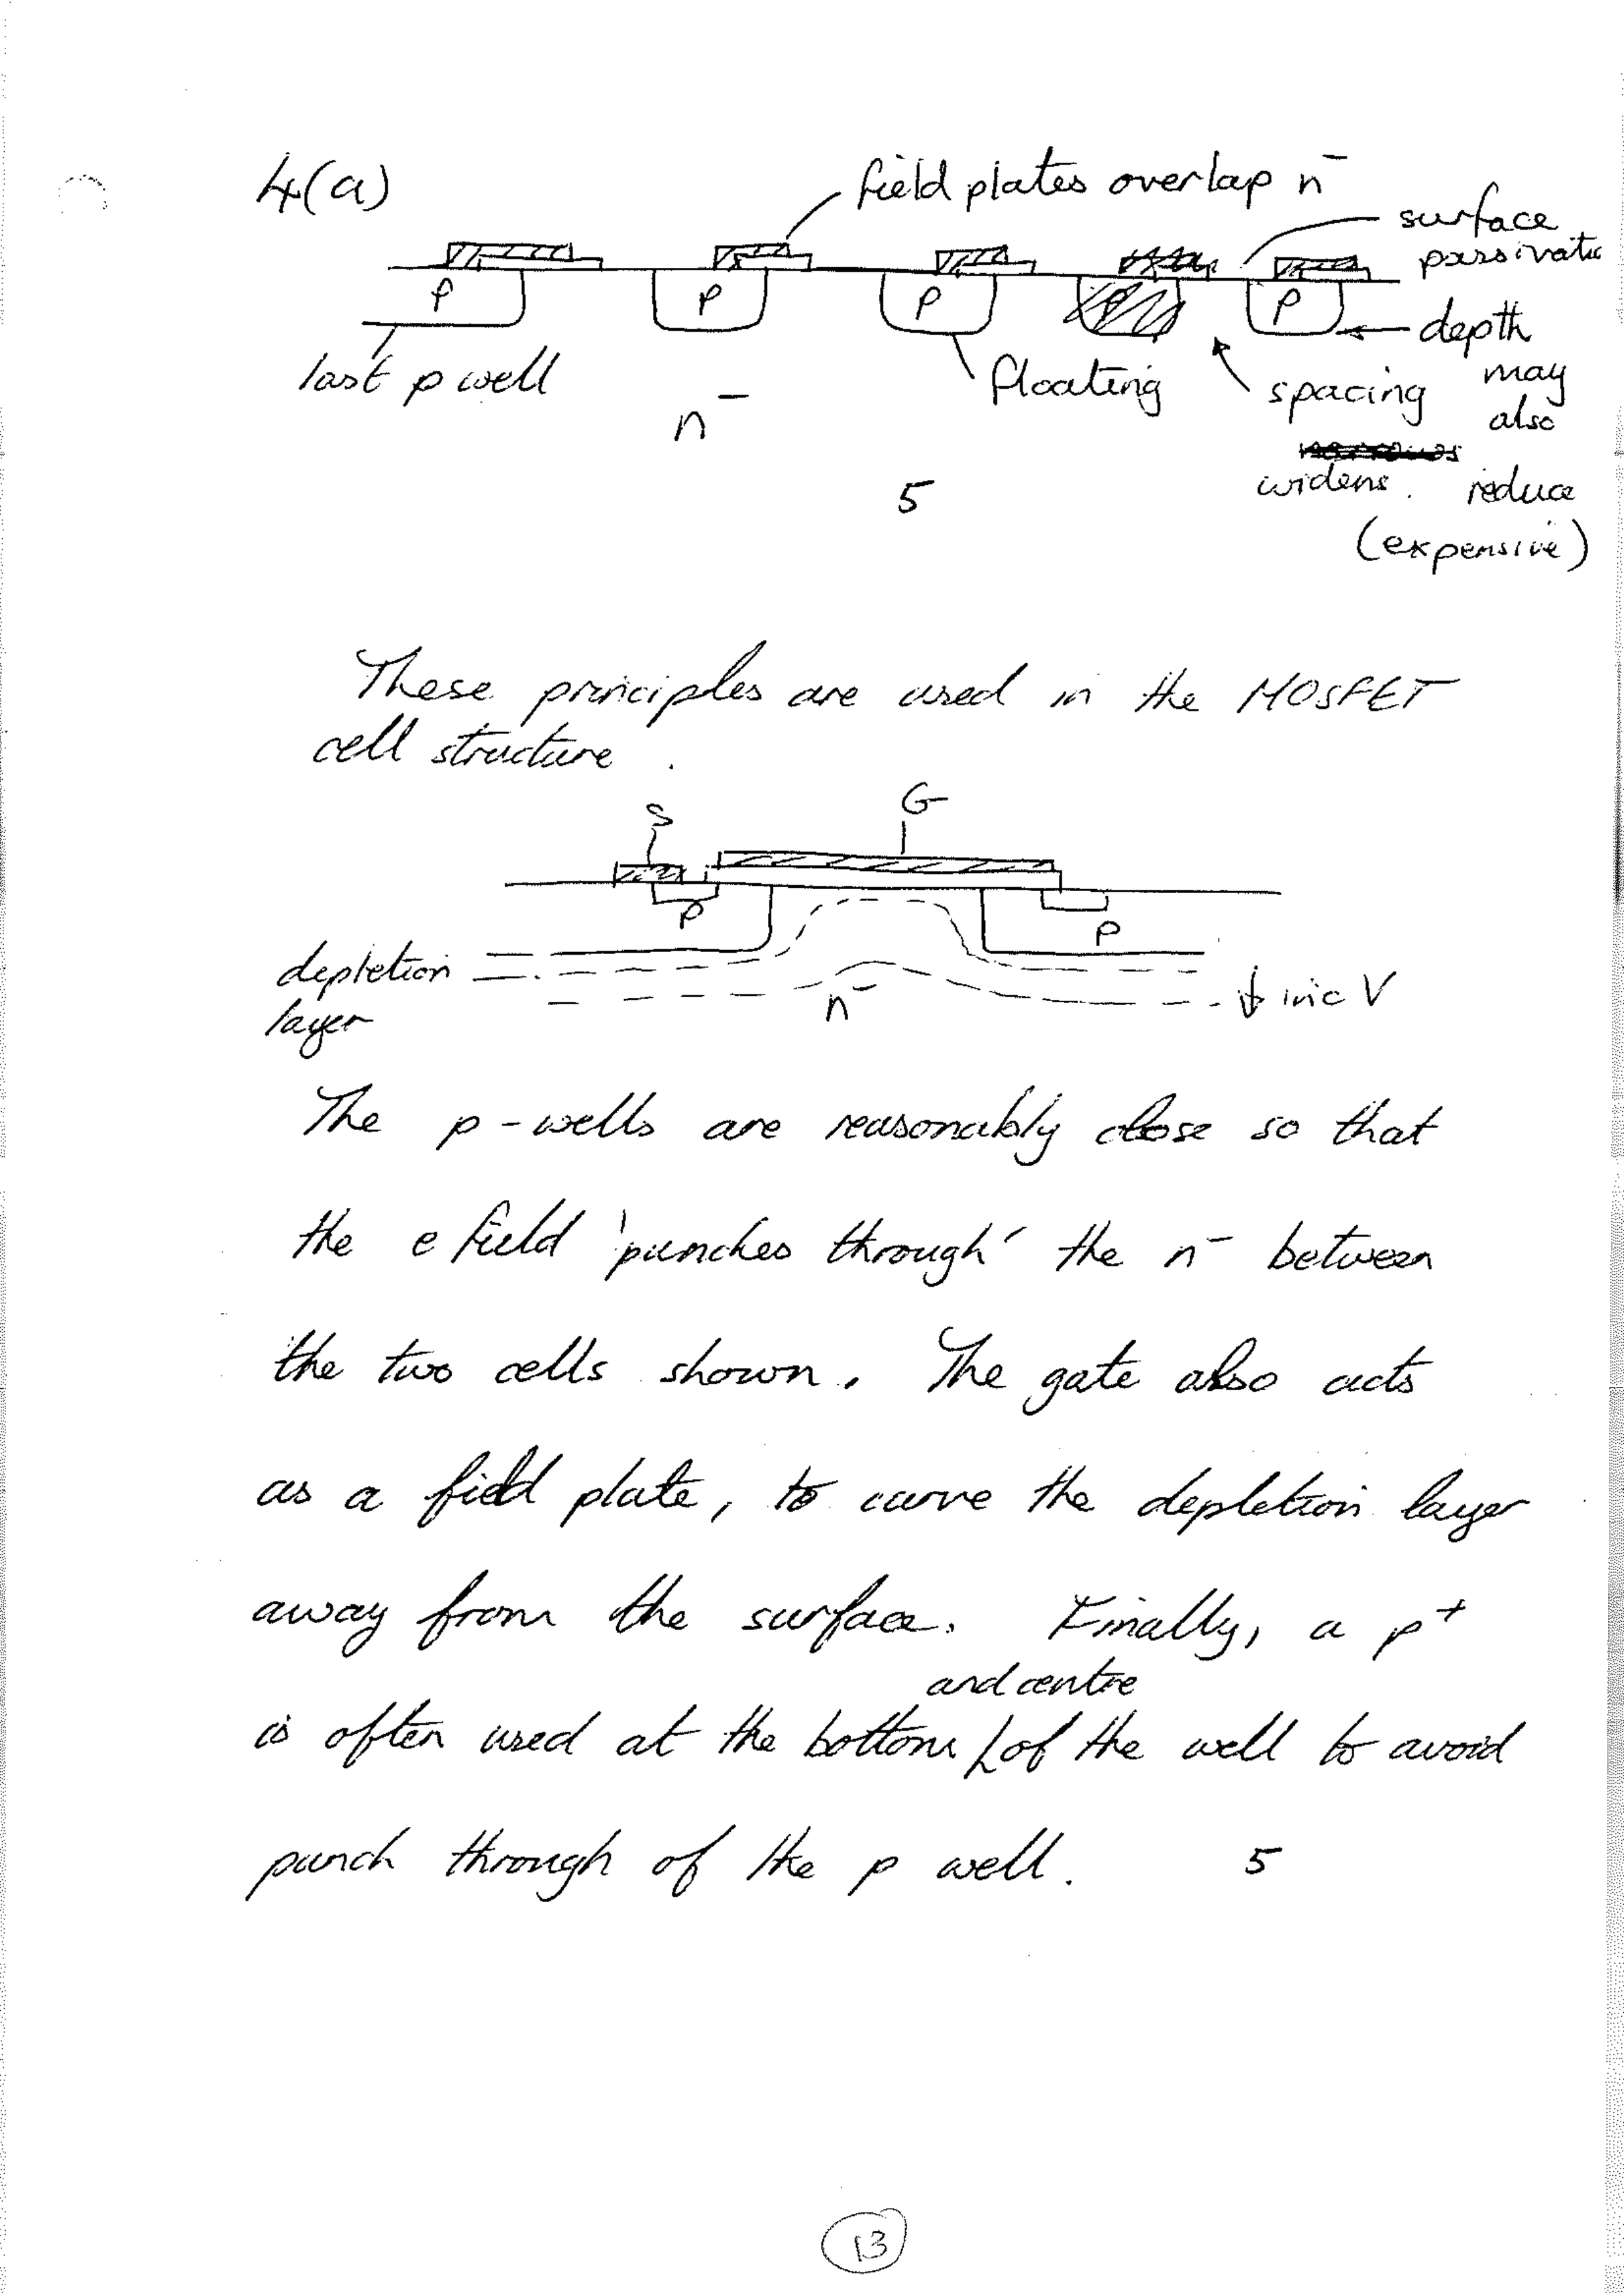 4(a)
field plates overlap n⁻
surface
passivatn
P P P P
last p well
floating
spacing
widens.
depth
may
also
reduce
(expensive)
n⁻
5
These principles are used in the MOSFET
cell structure.
S G
P P
depletion
layer
n⁻
inc V
The p-wells are reasonably close so that
the e field 'punches through' the n⁻ between
the two cells shown. The gate also acts
as a field plate, to curve the depletion layer
away from the surface. Finally, a p⁺
and centre
is often used at the bottom of the well to avoid
punch through of the p well. 5
13